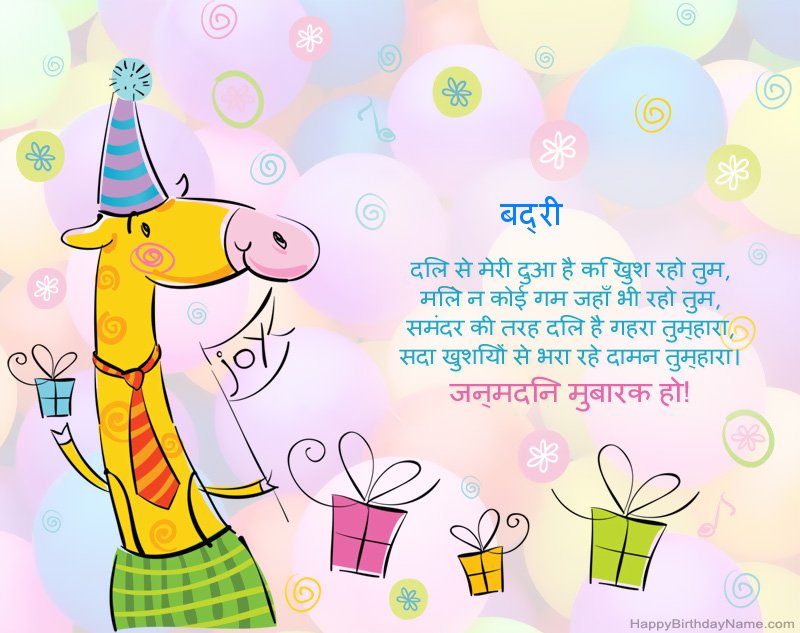 बद्री
दिल से मेरी दुआ है कि खुश रहो तुम,
मिले न कोई गम जहाँ भी रहो तुम,
समंदर की तरह दिल है गहरा तुम्हारा,
सदा खुशियों से भरा रहे दामन तुम्हारा।
जन्मदिन मुबारक हो!
joy
HappyBirthdayName.com